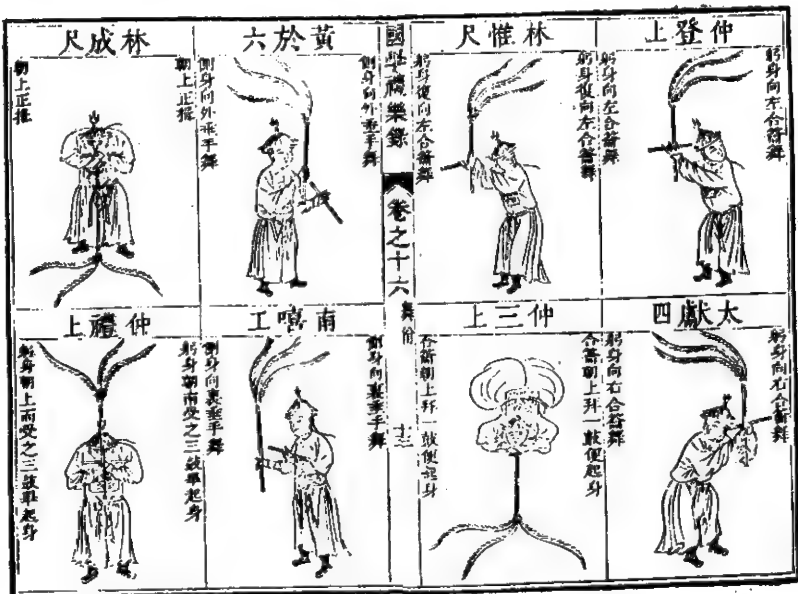 仲登上
躬身復向左合籥舞
躬身向左合籥舞
林惟尺
躬身復向左合籥舞
躬身復向左合籥舞
太獻四
躬身向右合籥舞
躬身向右合籥舞
仲三上
合籥朝上拜一鼓便起身
合籥朝上拜一鼓便起身
國學禮樂錄
卷之十六
舞佾
十三
黃於六
側身向外垂手舞
側身向外垂手舞
林成尺
朝上正揖
朝上正揖
南嘻工
側身向裏垂手舞
側身向裏垂手舞
仲禮上
躬身朝南受之三鼓畢起身
躬身朝上而受之三鼓畢起身